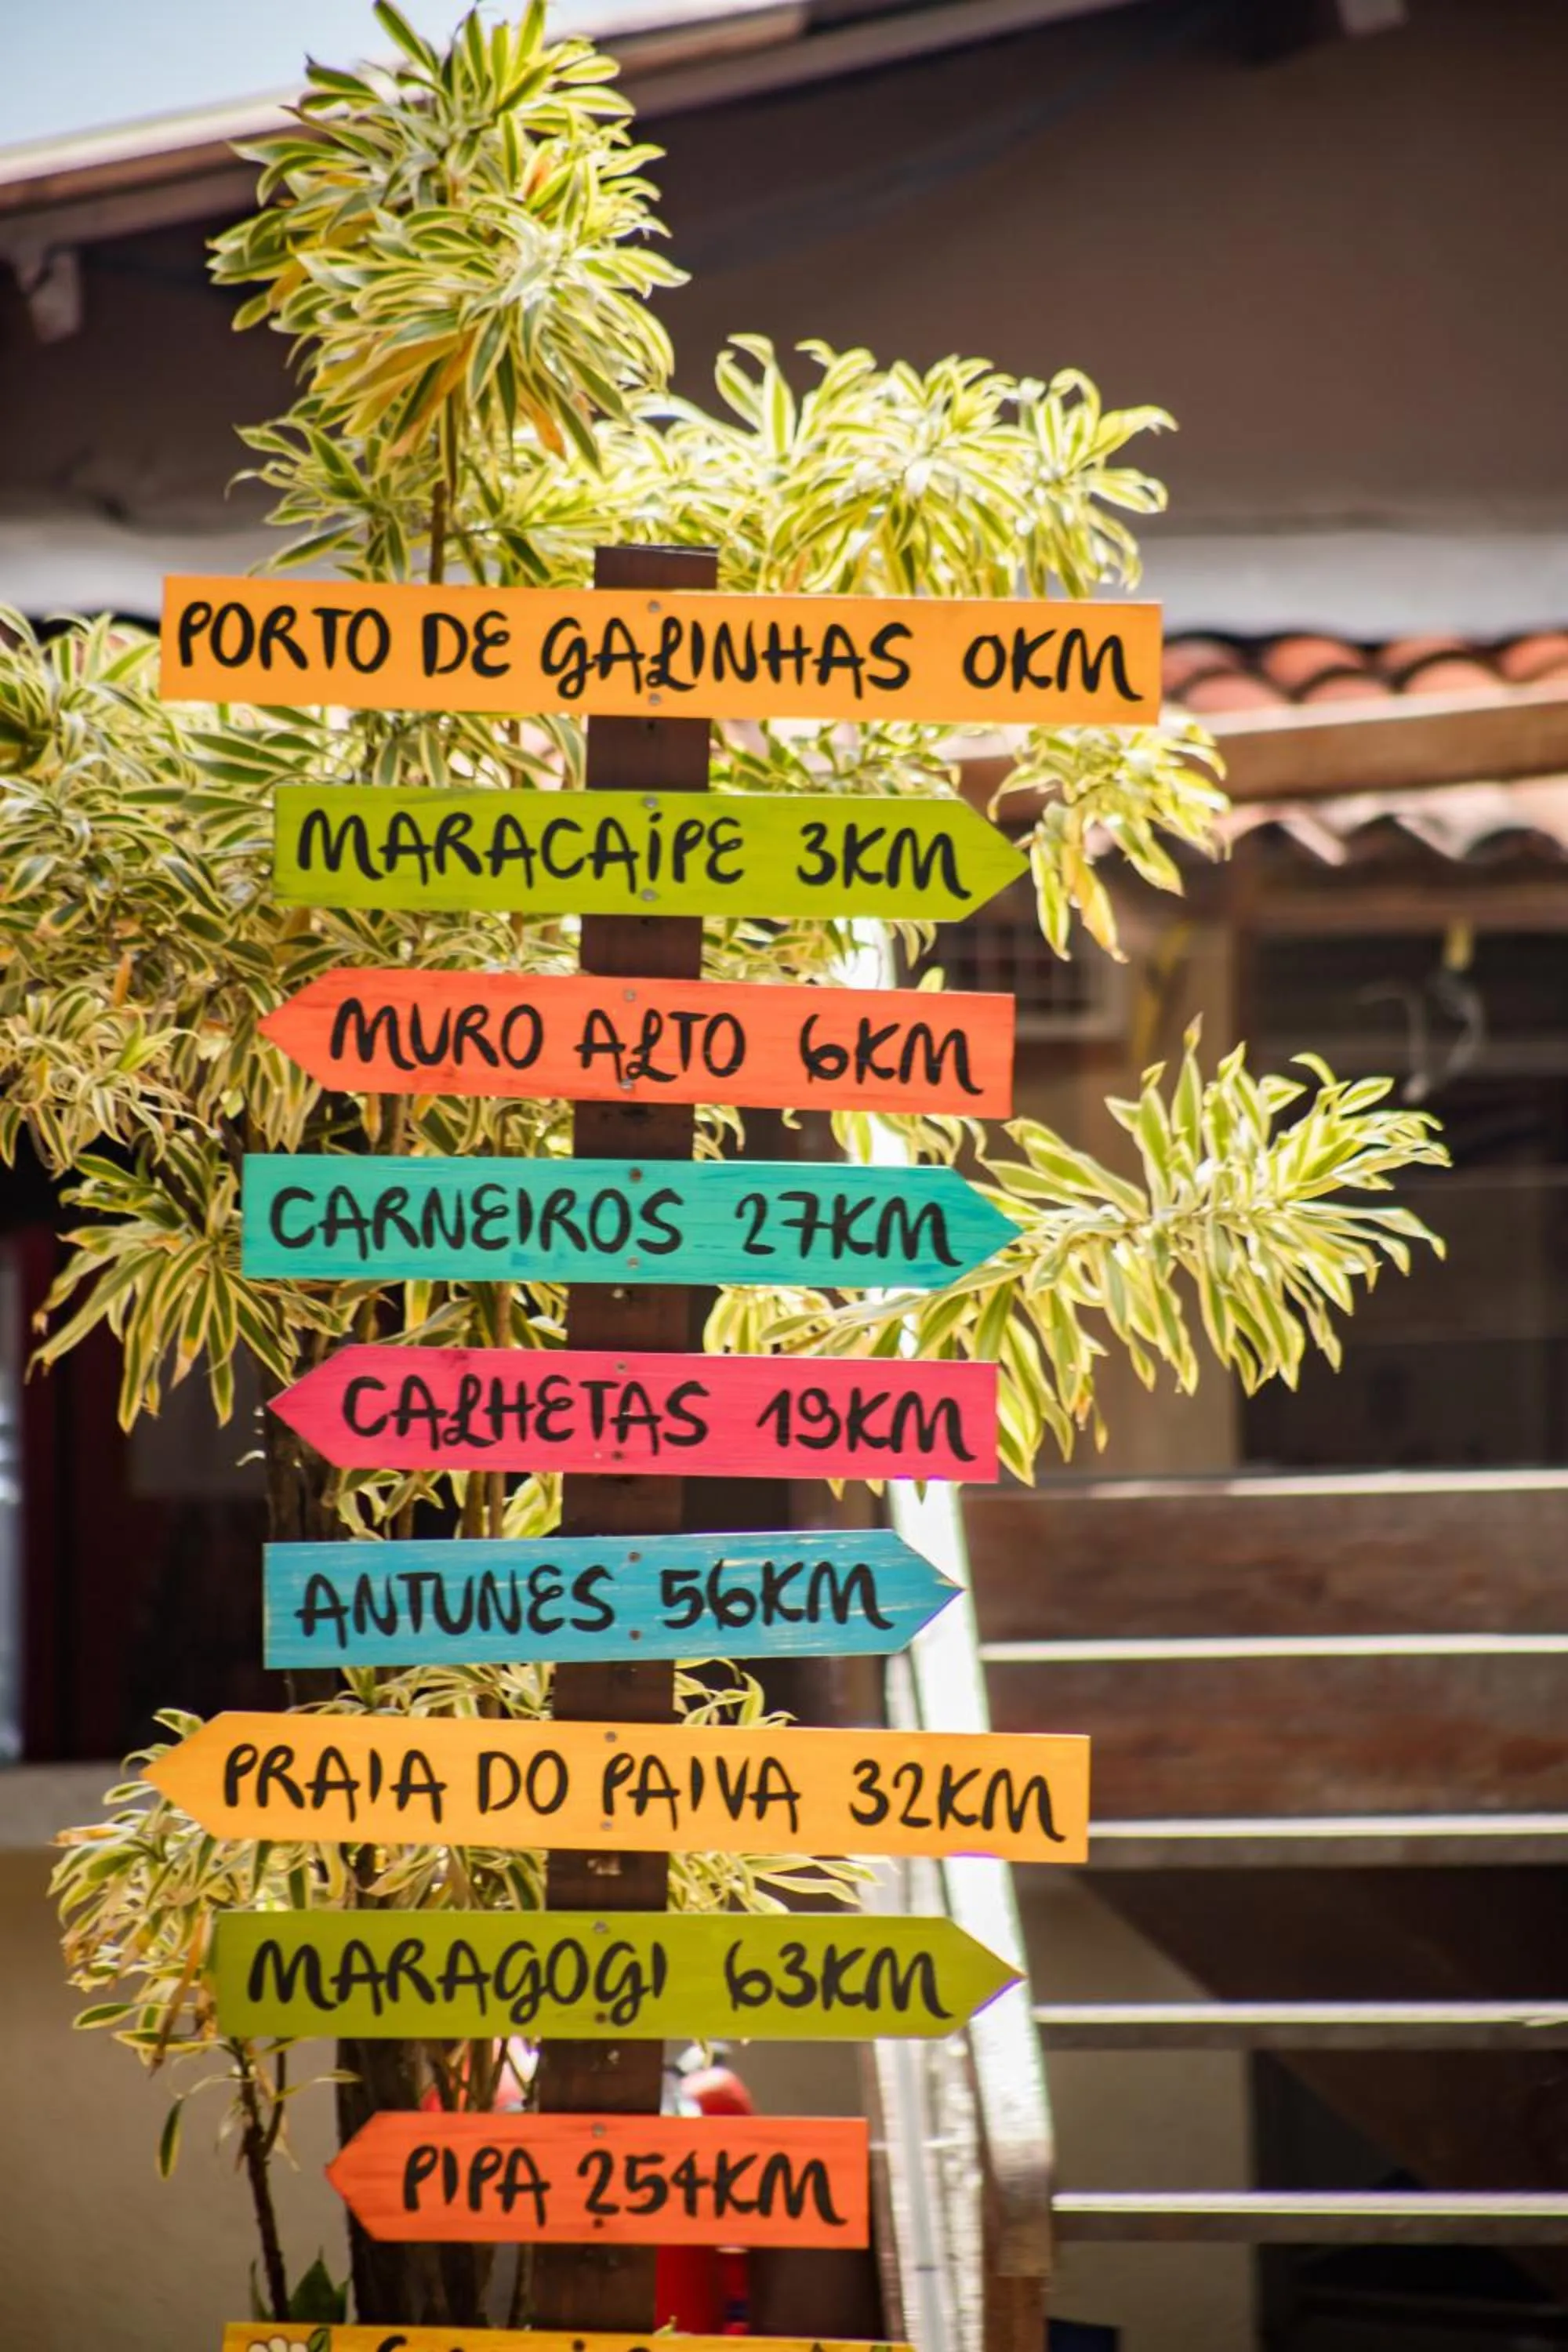 PORTO DE GALINHAS 0KM
MARACAiPE 3KM
MURO ALTO 6KM
CARNEIROS 27KM
CALHETAS 19KM
ANTUNES 56KM
PRAIA DO PAIVA 32KM
MARAGOGI 63KM
PIPA 254KM